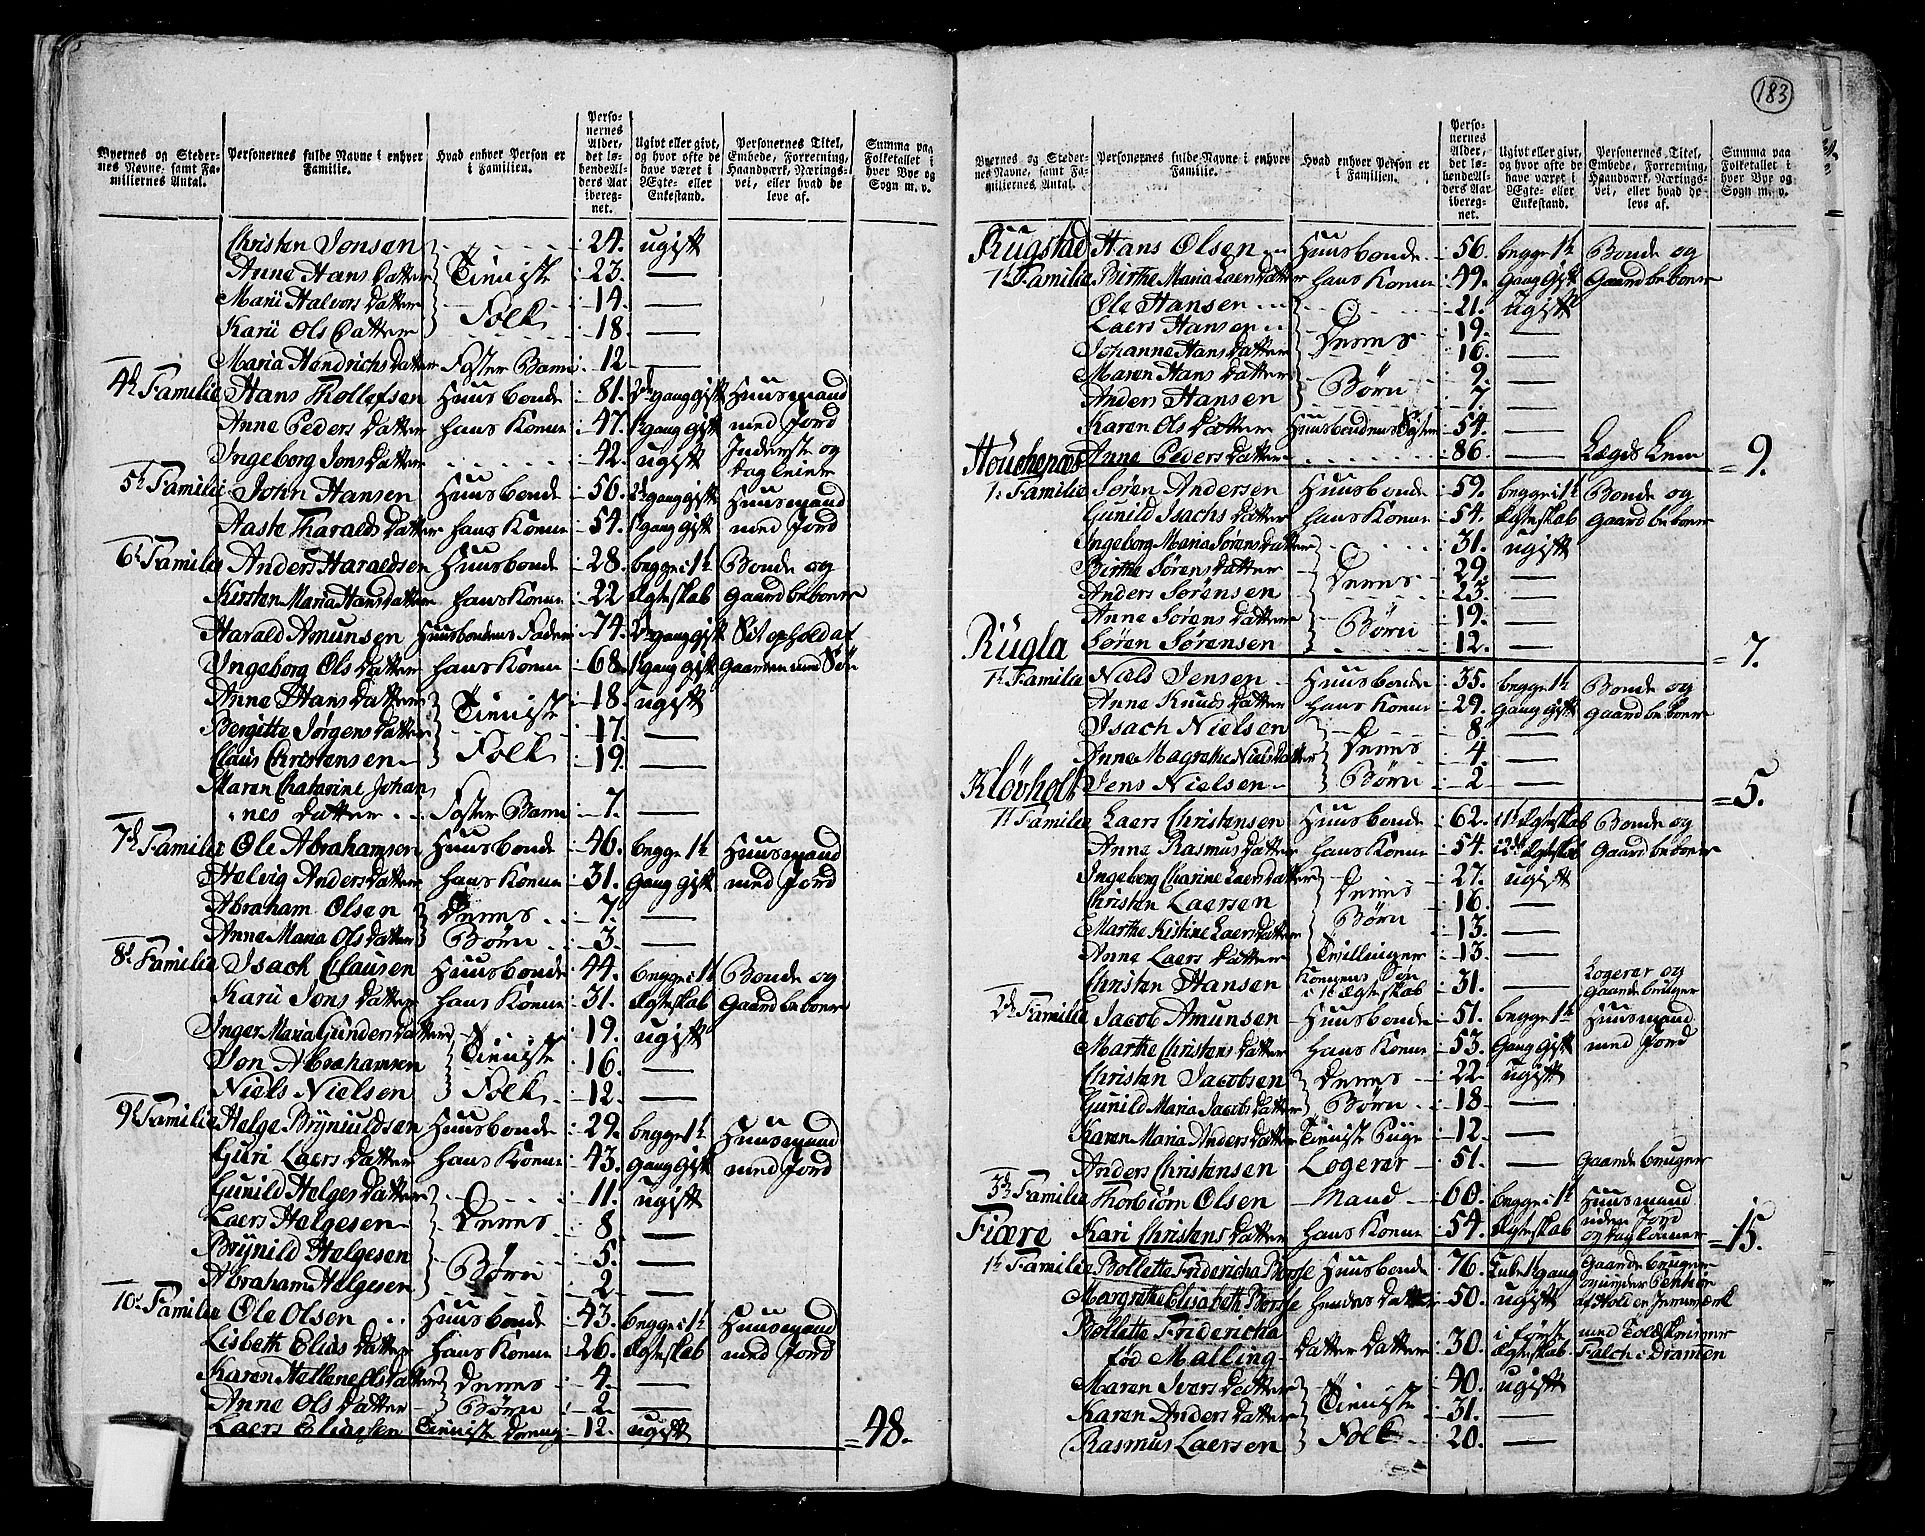 183
Byernes og Steder-
nes Navne, samt Fa-
miliernes Antal.
Personernes fulde Navne i enhver
Familie.
Hvad enhver Person er
i Familien.
Perso-
nernes
Alder,
det lø-
bende Al-
ders Aar
ibereg-
net.
Ugivt eller givt,
og hvor ofte de
have været i
Ægte- eller
Enkestand.
Personernes Titel,
Embede, Forretning,
Haandværk, Nærings-
vei, eller hvad de
leve af.
Summa paa
Folketallet i
hver Bye og
Sogn m. v.
Christen Jonsen } Tieniste 24. ugift
Anne Hans Datter 23. —
Marii Halvors Datter } Folk 14. —
Karii Ols Datter 18. —
Maria Hendrichs Datter Foster Barn 12 —
4de Familie Hans Rollefsen Huusbonde 81. 2den gang gift Huusmand
Anne Peders Datter hans Konne 47. 1te gang gift med Jord
Ingeborg Jons Datter 42. ugift Inderste og
dagleiner
5te Familie John Hansen Huusbonde 56. gang gift Huusmand
Aaste Tharalds Datter hans Konne 54. 1te gang gift med Jord
6te Familie Anders Haraldsen Huusbonde 28. begge i 1te Bonde og
Kirsten Maria Hans datter hans Konne 22 Ægteskab Gaardbeboere
Harald Amunsen Huusbondens Fader 74. gang gift Sit ophold af
Ingeborg Ols Datter hans Konne 68. 1te gang gift Gaarden med Søn
Anne Hans Datter } Tieniste 18. ugift
Bergitte Jørgens Datter 17. —
Claus Christensen } Folk 19. —
Maren Chatarine Johan
nes datter Foster Barn 7. —
7de Familie Ole Abrahamsen Huusbonde 46. begge 1te Huusmand
Helvig Anders Datter hans Konne 31. Gang Gift med Jord
Abraham Olsen } Deres 7. —
Anne Maria Ols Datter } Børn 3. —
8de Familie Isach Clausen Huusbonde 44. begge i 1te Bonde og
Karii Jons Datter hans Konne 31. Ægteskab Gaardbeboere
Inger Maria Gunders Datter } Tieniste 19. ugift
Jon Abrahamsen 16. —
Niels Nielsen } Folk 12. —
9de Familie Helge Brÿniuldsen Huusbonde 29. begge 1te Huusmand
Guri Laers Datter hans Konne 43. Gang Gift med Jord
Gunild Helges Datter } Deres 11. ugift
Laers Helgesen 8 —
Brÿnild Helgesen } Børn 5. —
Abraham Helgesen 2 —
10de Familie Ole Olsen Huusbonde 43. begge i 1te Huusmand
Lisbeth Elias Datter hans Konne 26. Ægteskab med Jord
Karen Hellene Ols Datter } Deres 4. —
Anne Ols Datter } Børn 2. —
Laers Eliassen Tieniste Dreng 12. ugift = 48.
Byernes og Steder-
nes Navne, samt Fa-
miliernes Antal.
Personernes fulde Navne i enhver
Familie.
Hvad enhver Person er
i Familien.
Perso-
nernes
Alder,
det lø-
bende Al-
ders Aar
ibereg-
net.
Ugivt eller givt,
og hvor ofte de
have været i
Ægte- eller
Enkestand.
Personernes Titel,
Embede, Forretning,
Haandværk, Nærings-
vei, eller hvad de
leve af.
Summa paa
Folketallet i
hver Bye og
Sogn m. v.
Rugstad Hans Olsen Huusbonde 56. begge 1te Bonde og
1te Familie Birthe Maria Laers Datter hans Konne 49. Gang Gift Gaardbeboere
Ole Hansen 21. ugift
Laers Hansen } Deres 19. —
Johanne Hans Datter 16. —
Maren Hans Datter } Børn 9. —
Anders Hansen 7. —
Karen Ols Datter Huusbondens Søster 54. —
Anne Peders Datter 86. — Lægds Lem = 9.
Houchenæs
1te Familie Søren Andersen Huusbonde 59. begge i 1te Bonde og
Gunild Isachs Datter hans Konne 54. Ægteskab Gaardbeboere
Ingeborg Maria Sørens Datter 31. ugift
Birthe Sørens Datter } Deres 29. —
Anders Sørensen 23. —
Anne Sørens Datter } Børn 19. —
Søren Sørensen 12. — = 7.
Rugla
1te Familie Niels Jensen Huusbonde 35. begge 1te Bonde og
Anne Knuds Datter hans Konne 29. Gang Gift Gaardbeboere
Isach Nielsen 8. —
Anne Magrethe Niels Datter } Deres 4. —
Jens Nielsen } Børn 2 — = 5.
Kløvholt
1te Familie Laers Christensen Huusbonde 62. i 1te Ægteskab Bonde og
Anne Rasmus Datter hans Konne 54. i 2det Ægteskab Gaardbeboere
Ingeborg Charine Laers Datter } Deres 27. ugift
Christen Laersen 16. —
Marthe Kistine Laers Datter } Børn 13. —
Anne Laers Datter } Tvillinger 13. —
Christen Hansen Konnens Søn
i 1te Ægteskab 31. — Logerer og
Gaardebruger
2de Familie Jacob Amunsen Huusbonde 51. begge 1te Huusmand
Marthe Christens Datter hans Konne 53. Gang Gift med Jord
Christen Jacobsen } Deres 22 ugift
Gunild Maria Jacobs Datter } Børn 18. —
Karen Maria Anders Datter Tieniste Piige 12 —
Anders Christensen Logerer 51. — Gaardebruger
3de Familie Thorbiørn Olsen Mand 60. begge i 1te Huusmand
uden Jord
Kari Christens Datter hans Konne 54. Ægteskab og daglønner = 15.
Fiære
1te Familie Bollette Fridericha Borse Huusbonde 76. Enke 1te gang Gaardebruger
og under Pention
Margrethe Elisabeth Borse hendes Datter 50. ugift
Bollette Fridericha
fød Malling Datter Datter 30. i første
Ægteskab med Toldskriver
Falch i Dramen
Maren Ivers Datter } Tieniste 40. ugift
Karen Anders Datter 31. —
Rasmus Laersen } Folk 20. —